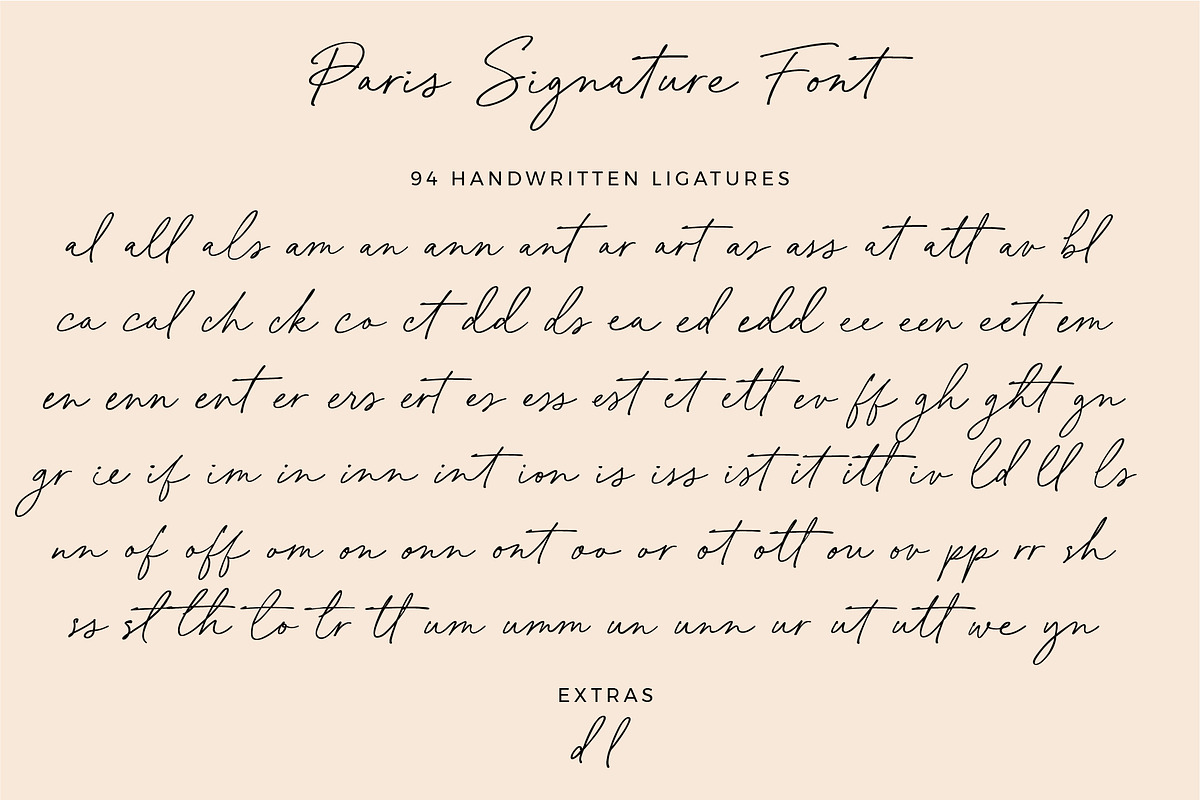 Paris Signature Font
94 HANDWRITTEN LIGATURES
al all als am an ann ant ar art as ass at att av bl
ca cal ch ck co ct dd ds ea ed edd ee een eet em
en enn ent er ers ert es ess est et ett ev ff gh ght gn
gr ie if im in inn int ion is iss ist it itt iv ld ll ls
nn of off om on onn ont oo or ot ott ou ov pp rr sh
ss st th to tr tt um umm un unn ur ut utt we yn
EXTRAS
d l